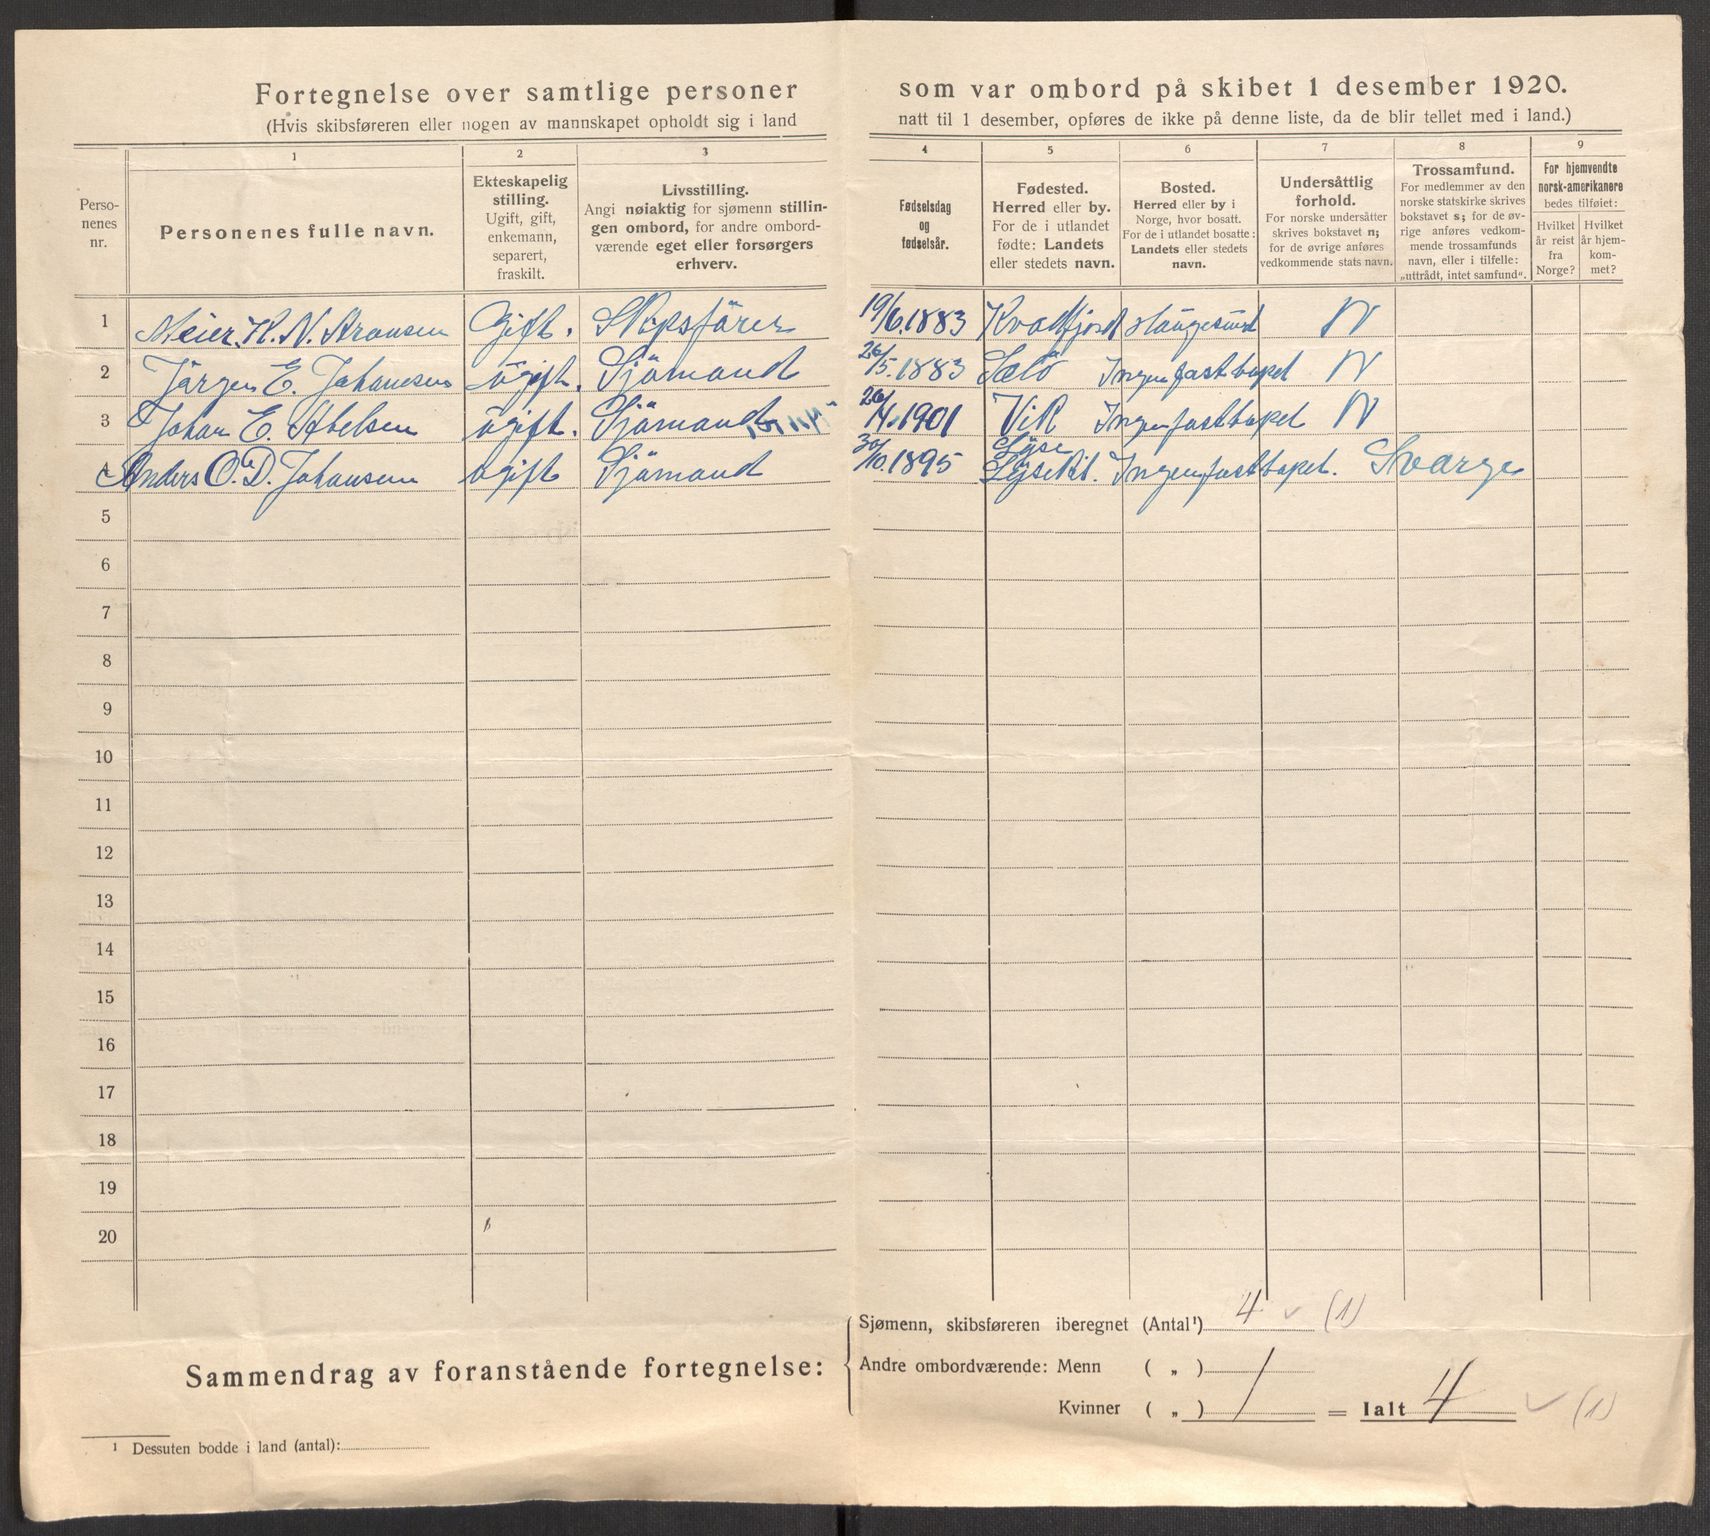 Fortegnelse over samtlige personer som var ombord på skibet 1 desember 1920.
(Hvis skibsføreren eller nogen av mannskapet opholdt sig i land natt til 1 desember, opføres de ikke på denne liste, da de blir tellet med i land.)
1 2 3 4 5 6 7 8 9
Perso-
nenes
nr.
Personenes fulle navn.
Ekteskapelig
stilling.
Ugift, gift,
enkemann,
separert,
fraskilt.
Livsstilling.
Angi nøiaktig for sjømenn stillin-
gen ombord, for andre ombord-
værende eget eller forsørgers
erhverv.
Fødselsdag
og
fødselsår.
Fødested.
Herred eller by.
For de i utlandet
fødte: Landets
eller stedets navn.
Bosted.
Herred eller by i
Norge, hvor bosatt.
For de i utlandet bosatte:
Landets eller stedets
navn.
Undersåttlig
forhold.
For norske undersåtter
skrives bokstavet n;
for de øvrige anføres
vedkommende stats navn.
Trossamfund.
For medlemmer av den
norske statskirke skrives
bokstavet s; for de øv-
rige anføres vedkom-
mende trossamfunds
navn, eller i tilfelle:
„uttrådt, intet samfund“.
For hjemvendte
norsk-amerikanere
bedes tilføiet:
Hvilket
år reist
fra
Norge?
Hvilket
år hjem-
kom-
met?
1 Meier K. N. gift. Skipsförer 19/6.1883 Kvadfjord Haugesund N
2 Jörgen E. Johansen ugift. Sjömand 26/5.1883 Selö Ingen fast bopel N
3 Johan E. Abelsen ugift. Sjömand 26/4.1901 Vik Ingen fast bopel N
4 Anders O. D. Johansen ugift Sjömand 30/10.1895 Lyse
Lysekil. Ingen fast bopel. Sverge
5
6
7
8
9
10
11
12
13
14
15
16
17
18
19
20
Sammendrag av foranstående fortegnelse:
Sjømenn, skibsføreren iberegnet (Antal¹) 4 ✓ (1)
Andre ombordværende: Menn ( „ ) /
Kvinner ( „ ) / = Ialt 4 ✓ (1)
¹ Dessuten bodde i land (antal):